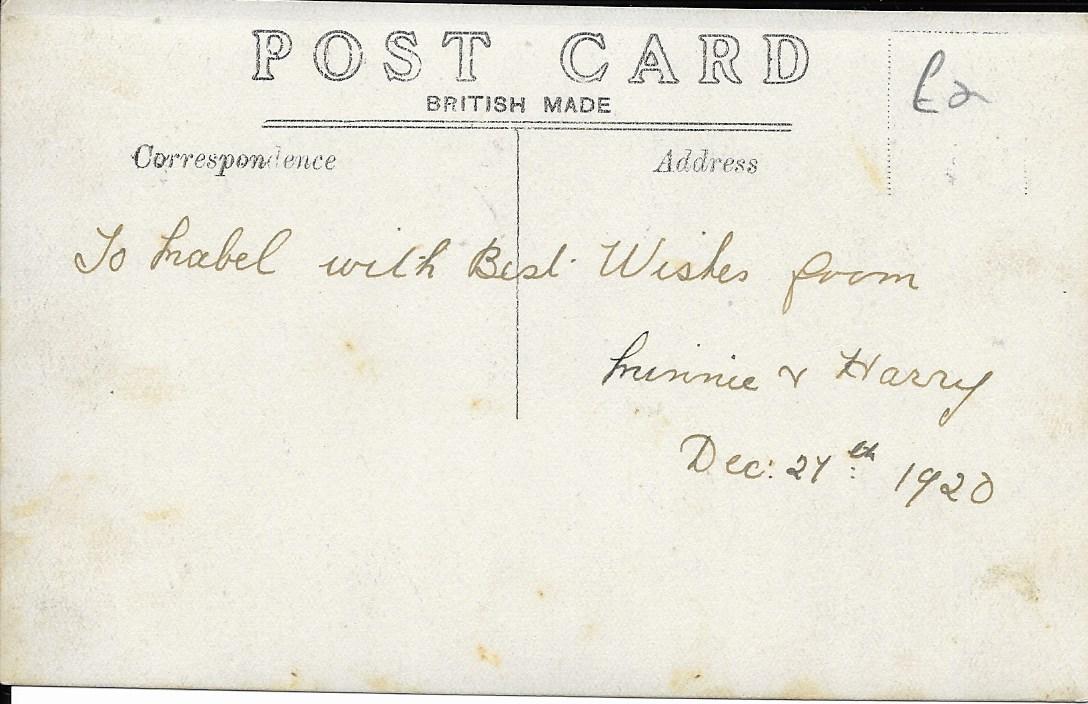 POST CARD
£2
BRITISH MADE
Correspondence
Address
To Mabel with Best Wishes from
Minnie & Harry
Dec: 27th 1920